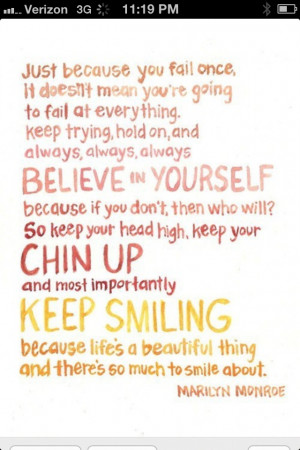 Verizon 3G 11:19 PM
Just because you fail once,
it doesn't mean you're going
to fail at everything.
keep trying, hold on, and
always, always, always
BELIEVE IN YOURSELF
because if you don't, then who will?
So keep your head high, keep your
CHIN UP
and most importantly
KEEP SMILING
because life's a beautiful thing
and there's so much to smile about.
MARILYN MONROE